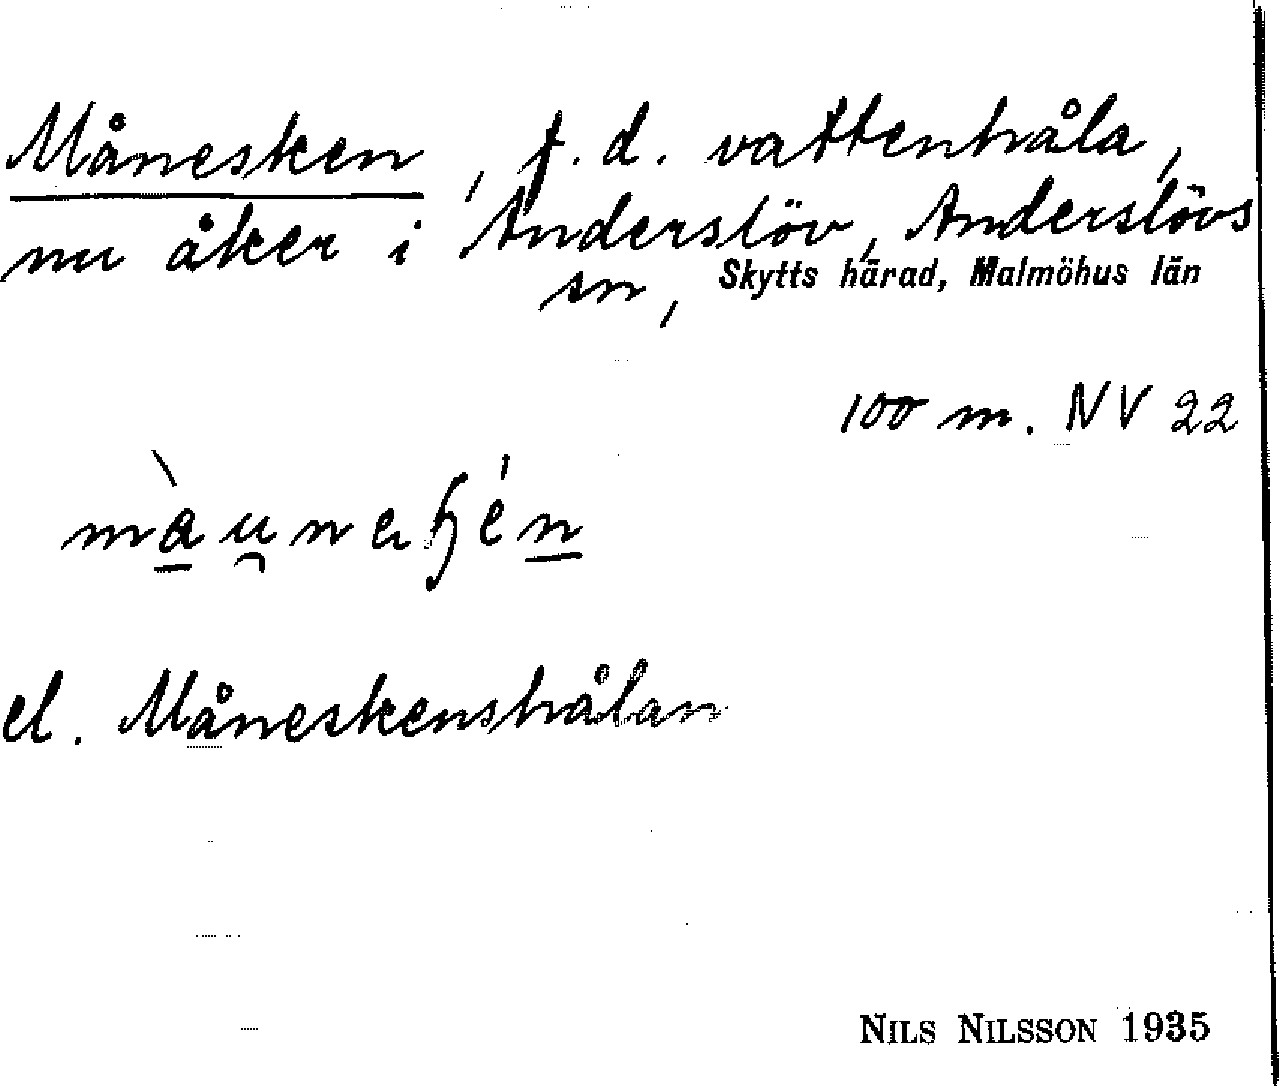 Månesken, f.d. vattenhåla,
nu åker i Anderslöv, Anderslövs
sn, Skytts härad, Malmöhus län
100 m. NV 22
el. Måneskenshålan
NILS NILSSON 1935